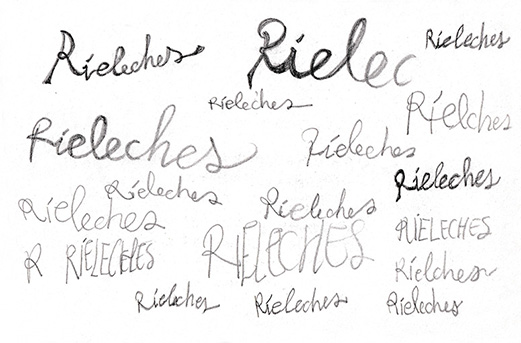 Rieleches
Rielec
Rieleches
Rieleches
Rielches
Rieleches
Rieleches
Rieleches
Rieleches
Rieleches
Rieleches
RIELECHES
RIELECHES
R RIELECELES
Rielches
Rieleches
Rieleches
Rieleches